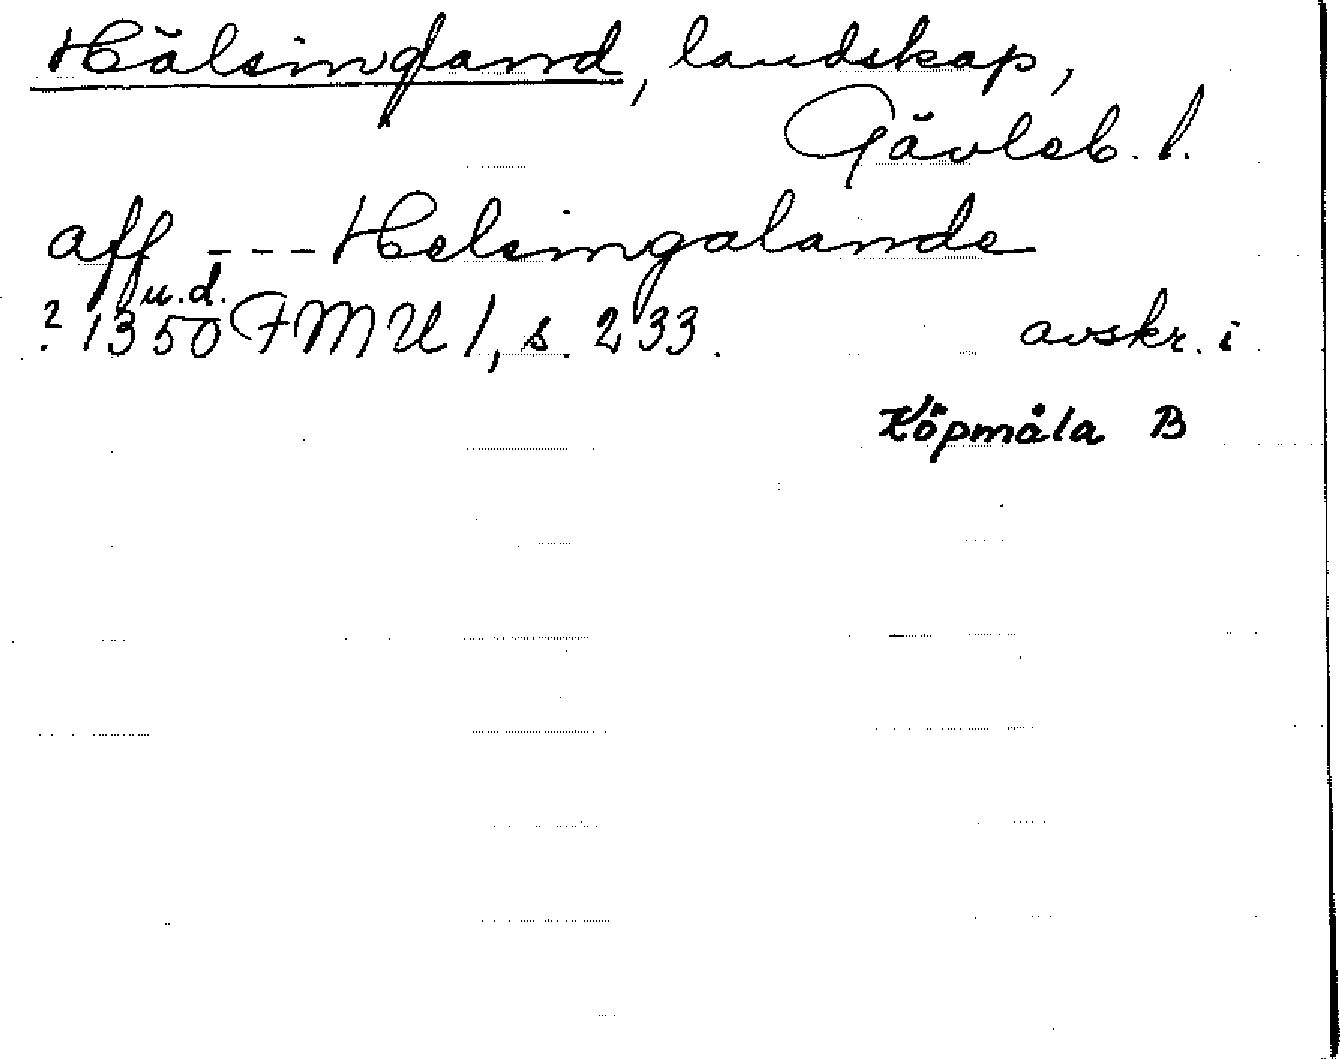 Hälsingland, landskap,
Gävleb. l.
aff --- Helsingalande
u.d.
? 1350 FMU 1, s. 233. avskr. i
Köpmåla B